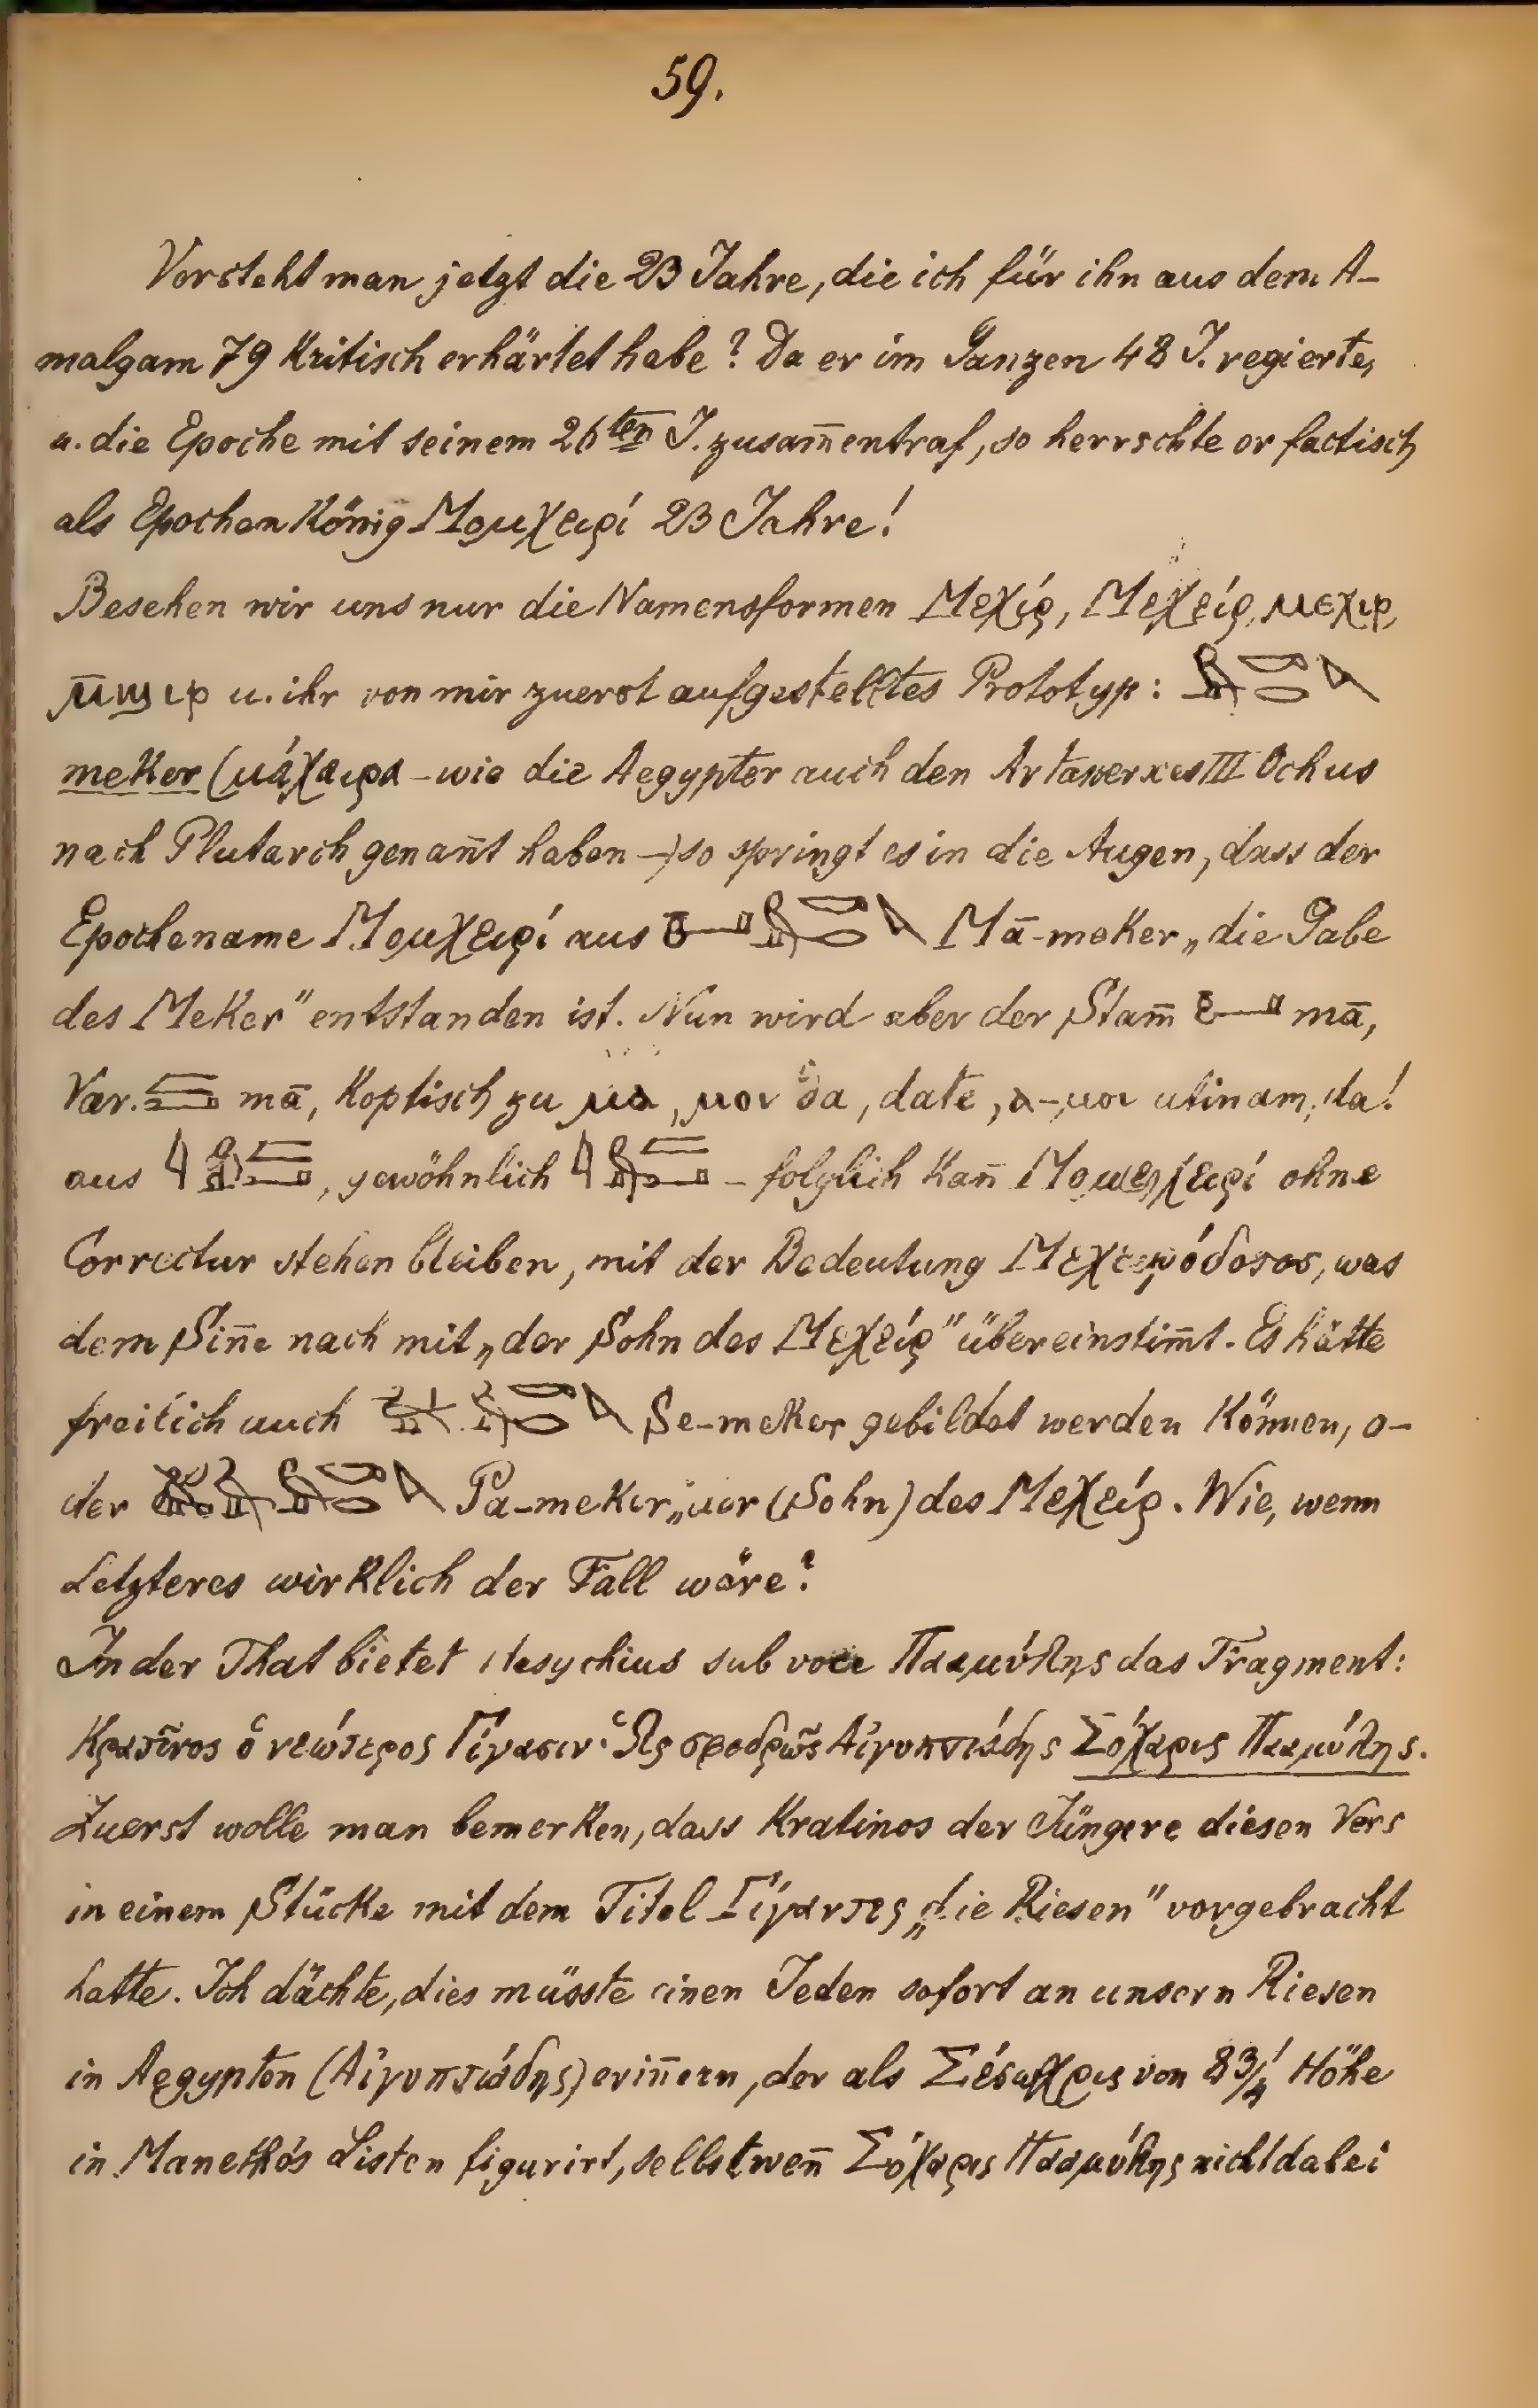 59.
Versteht man jetzt die 23 Jahre, die ich für ihn aus dem A-
malgam 79 Kritisch erhärtet habe? Da er im Ganzen 48 J. regierte,
u. die Epoche mit seinem 26ten J. zusam̄entraf, so herrschte er factisch
als Epochen König Μομχειρί 23 Jahre!
Besehen wir uns nur die Namensformen Μεχίρ, Μεχείρ, ⲙⲉⲭⲓⲣ,
u. ihr von mir zuerst aufgestelltes Prototyp:
meker (μάχαιρα – wie die Aegypter auch den Artaxerxes III Ochus
nach Plutarch genan̄t haben –) so springt es in die Augen, dass der
Epochename Μομχειρί aus Mā-meker „die Gabe
des Meker" entstanden ist. Nun wird aber der Stam̄ mā,
Var. mā, Koptisch zu ⲙⲁ, ⲙⲟⲓ da, date, ⲁ-ⲙⲟⲓ utinam, da!
aus , gewöhnlich – folglich kan̄ ohne
Correctur stehen bleiben, mit der Bedeutung Μεχειρόδοτος, was
dem Sin̄e nach mit „der Sohn des Μεχείρ" übereinstim̄t. Es hätte
freilich auch Se-meker gebildet werden Können, o-
der Pa-meker „der (Sohn) des Μεχείρ. Wie, wenn
Letzteres wirklich der Fall wäre?
In der That bietet Hesychius sub voce Πααμύλης das Fragment:
Κρατῖνος ὁ νεώτερος Γίγασιν· Ὡς σφοδρῶς Αἰγυπτιώδης Σόχαρις Πααμύλης.
Zuerst wolle man bemerken, dass Kratinos der Jüngere diesen Vers
in einem Stücke mit dem Titel Γίγαντες „die Riesen" vorgebracht
hatte. Ich dächte, dies müsste einen Jeden sofort an unsern Riesen
in Aegypten (Αἰγυπτιώδης) erin̄ern, der als Σέσωχρις von 8 3/4' Höhe
in Manethós Listen figurirt, selbst wen̄ Σόχαρις Πααμύλης nicht dabei